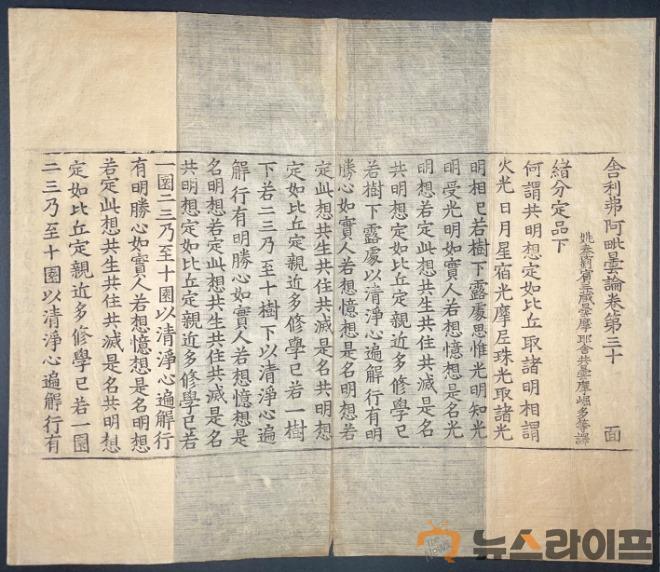 舍利弗阿毗曇論卷第三十 面
姚秦罽賓三藏曇摩耶舍共曇摩崛多等譯
緒分定品下
何謂共明想定如比丘取諸明相謂
火光日月星宿光摩尼珠光取諸光
明相已若樹下露處思惟光明知光
明受光明如實人若想憶想是名光
明想若定此想共生共住共滅是名
共明想定如比丘定親近多修學已
若樹下露處以清淨心遍解行有明
勝心如實人若想憶想是名明想若
定此想共生共住共滅是名共明想
定如比丘定親近多修學已若一樹
下若二三乃至十樹下以清淨心遍
解行有明勝心如實人若想憶想是
名明想若定此想共生共住共滅是名
共明想定如比丘定親近多修學已若
一園二三乃至十園以清淨心遍解行
有明勝心如實人若想憶想是名明想
若定此想共生共住共滅是名共明想
定如比丘定親近多修學已若一園
二三乃至十園以清淨心遍解行有
The News 뉴스라이프